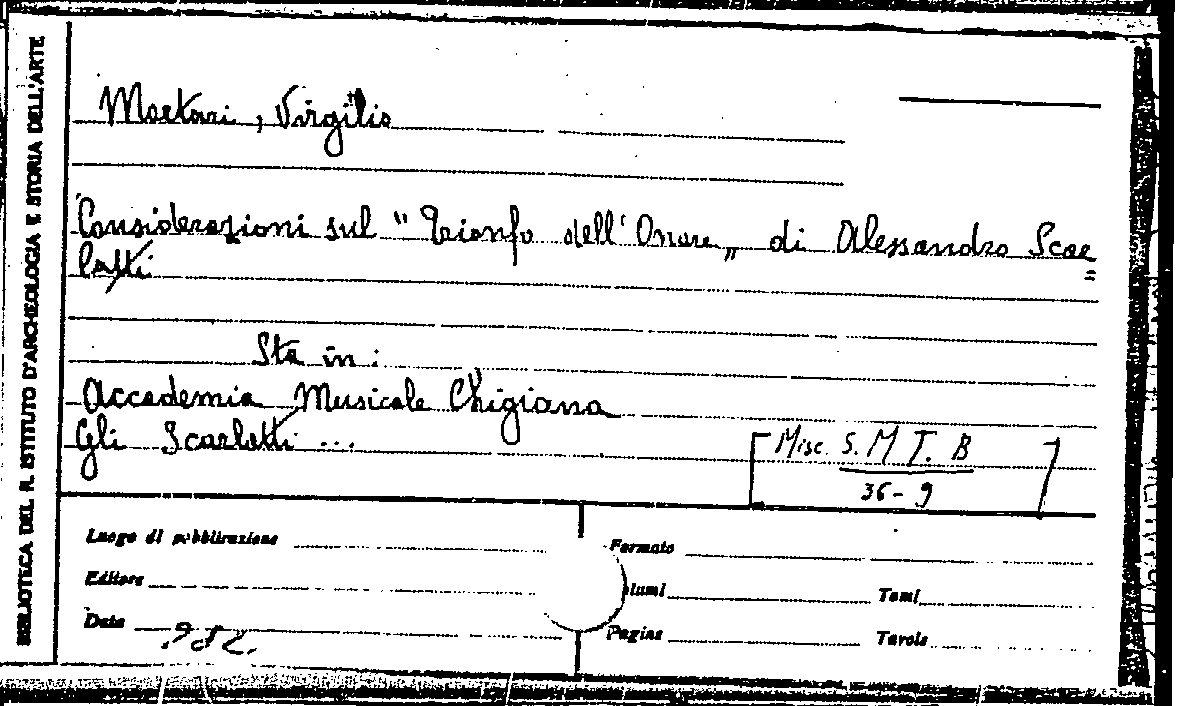 BIBLIOTECA DEL R. ISTITUTO D'ARCHEOLOGIA E STORIA DELL'ARTE
Mortari, Virgilio
Considerazioni sul "Trionfo dell'Onore" di Alessandro Scar=
latti
Sta in:
Accademia Musicale Chigiana
Gli Scarlatti ...
[Misc. S. M T. B
36-9]
Luogo di pubblicazione
Formato
Editore
olumi
Tomi
Data
Pagine
Tavole